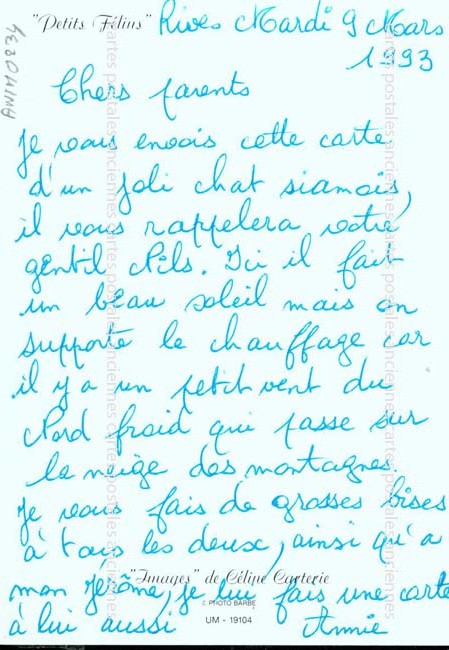 "Petits Félins" Rives Mardi 9 Mars
1993
Chers parents
Je vous envois cette carte
d'un joli chat siamois,
il vous rappelera votre
gentil Nils. Ici il fait
un beau soleil mais on
supporte le chauffage car
il y a un petit vent du
Nord froid qui passe sur
la neige des montagnes.
Je vous fais de grosses bises
à tous les deux, ainsi qu'a
"Images" de Céline Carterie
mon Jérôme, je lui fais une carte
© PHOTO BARBE
à lui aussi Annie
UM - 19104
cartes postales anciennes